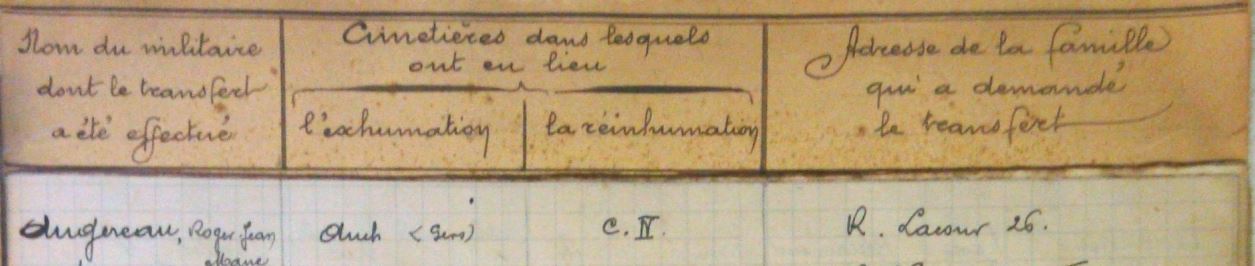 Nom du militaire
dont le transfert
a été effectué
Cimetières dans lesquels
ont eu lieu
l'exhumation
la réinhumation
Adresse de la famille
qui a demandé
le transfert
Augereau, Roger Jean
Marie
Auch (Gers)
C. IV.
R. Lacour 26.